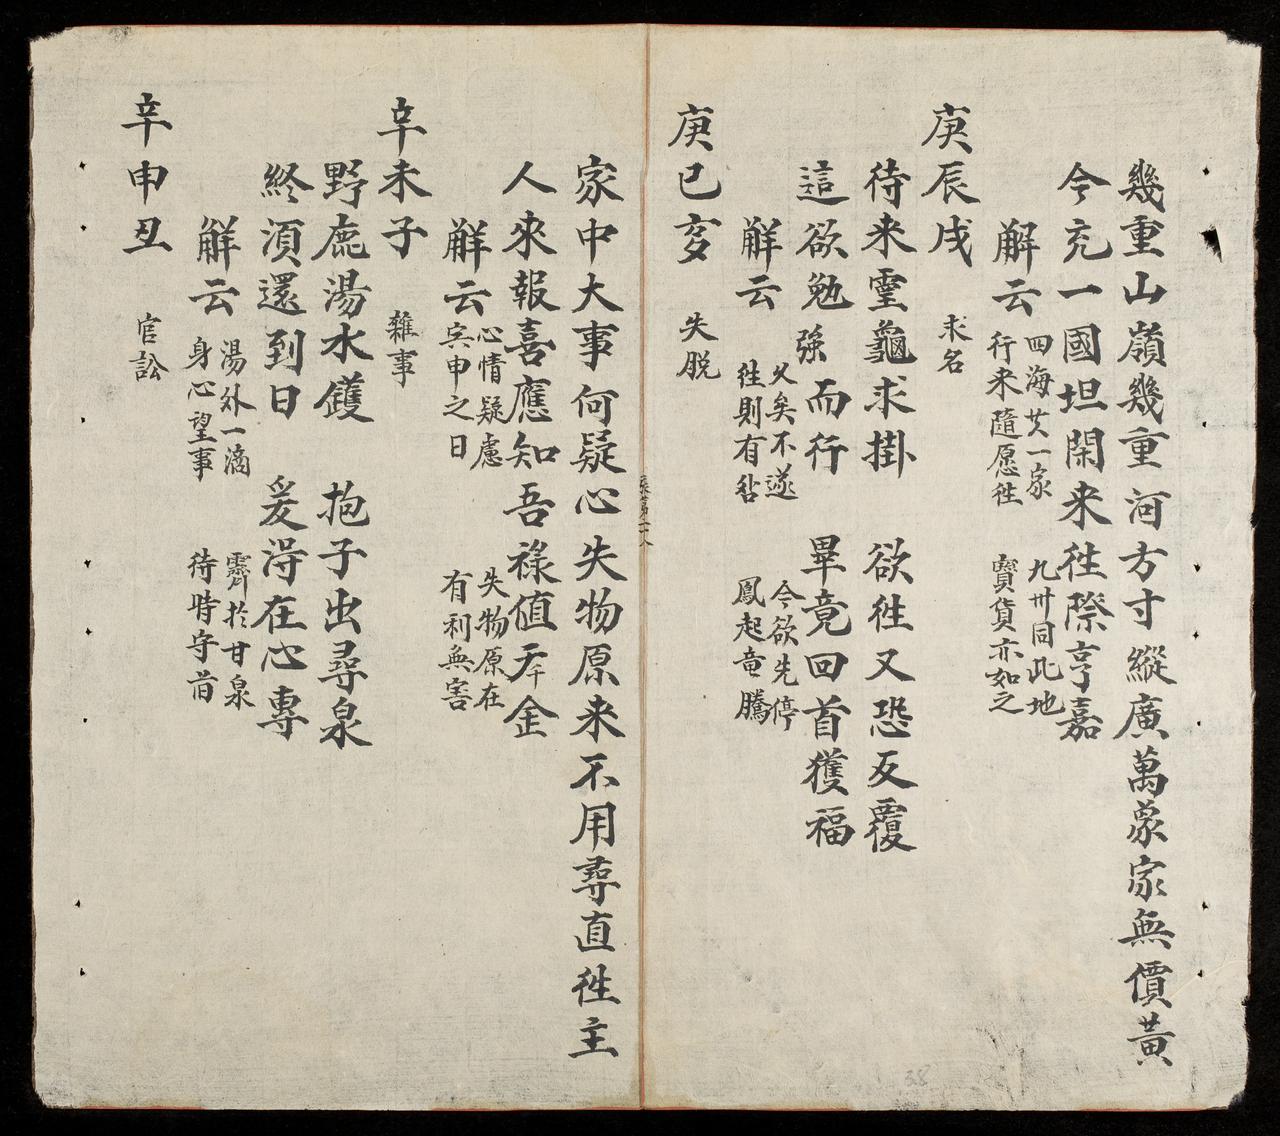 幾重山嶺幾重河方寸縱廣萬象家無價黃
今充一國坦閑来徃際亨嘉
解云 四海共一家 九卅同此地
行来隨愿徃 寶貨亦如之
庚辰戌 求名
待来靈龜求掛 欲徃又恐反覆
這欲勉強而行 畢竟回首獲福
解云 乆矣不遂 今欲先停
徃則有 鳳起竜騰
庚巳亥 失脱
家中大事何疑心失物原来不用尋直徃主
人來報喜應知吾祿值千金
解云 心情疑慮 失物原在
寅申之日 有利無害
辛未子 雜事
野鹿湯水鑊 抱子出尋泉
終湏還到日 爰淂在心專
解云 湯外一滴 霽於甘泉
身心望事 待時守前
辛申丑 官訟